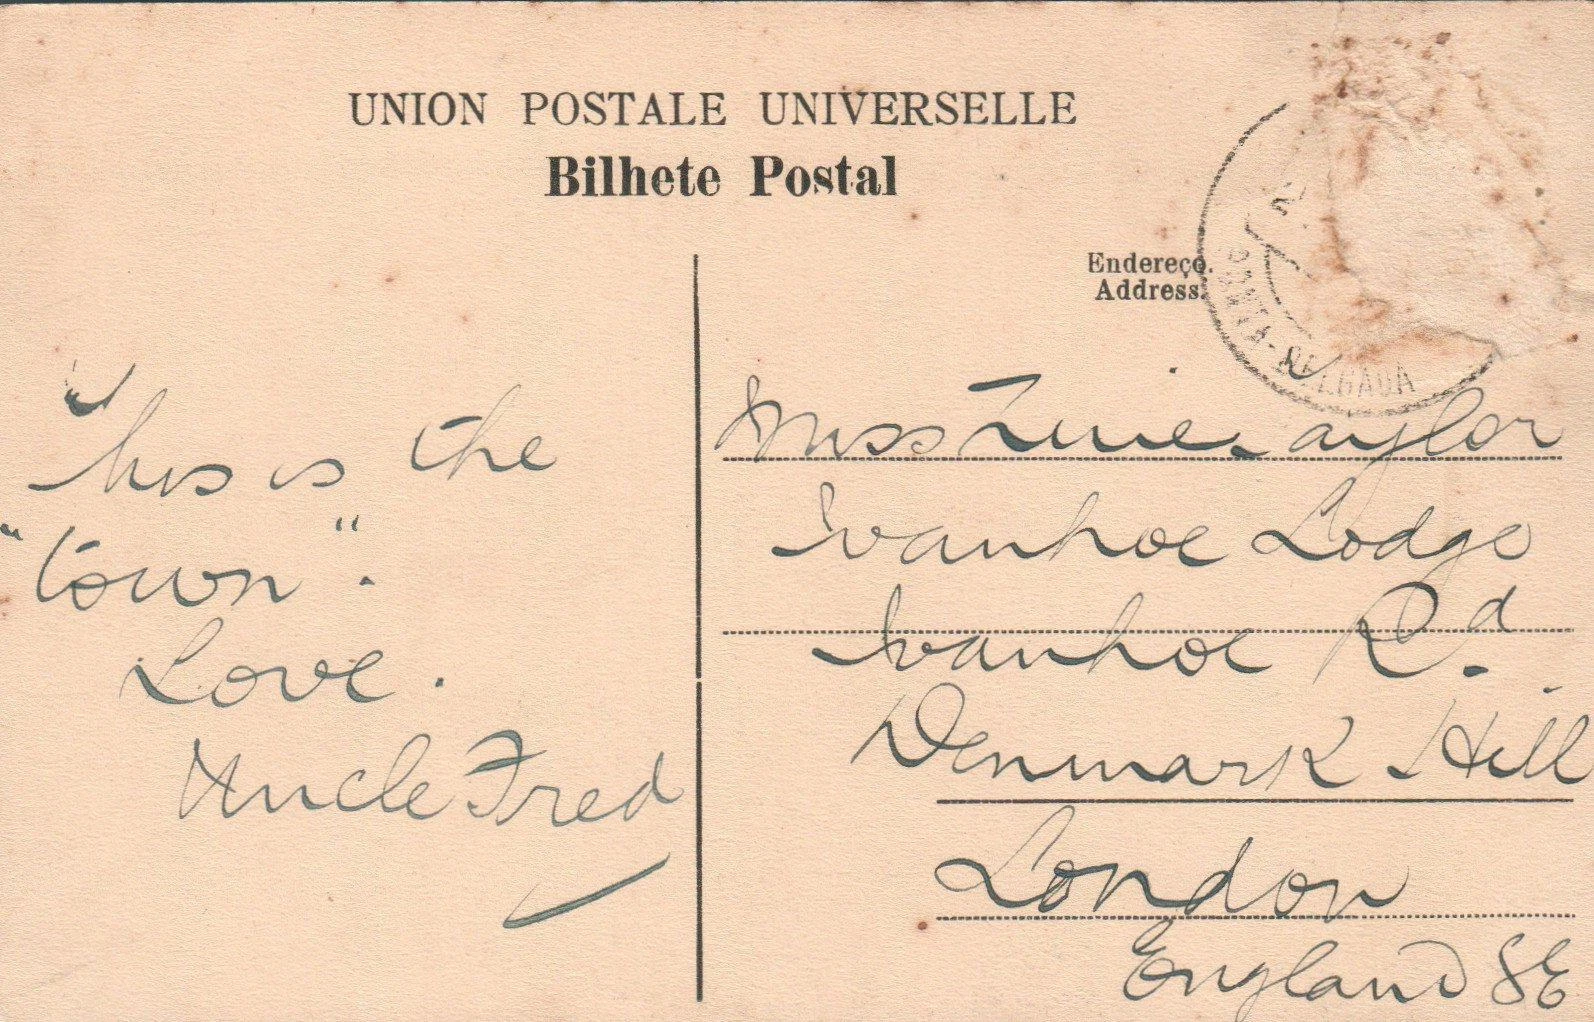 UNION POSTALE UNIVERSELLE
Bilhete Postal
Endereço.
Address.
PONTA-DELGADA
This is the
"town".
Love.
Uncle Fred
Miss Taylor
Ivanhoe Lodge
Ivanhoe Rd.
Denmark Hill
London
England SE